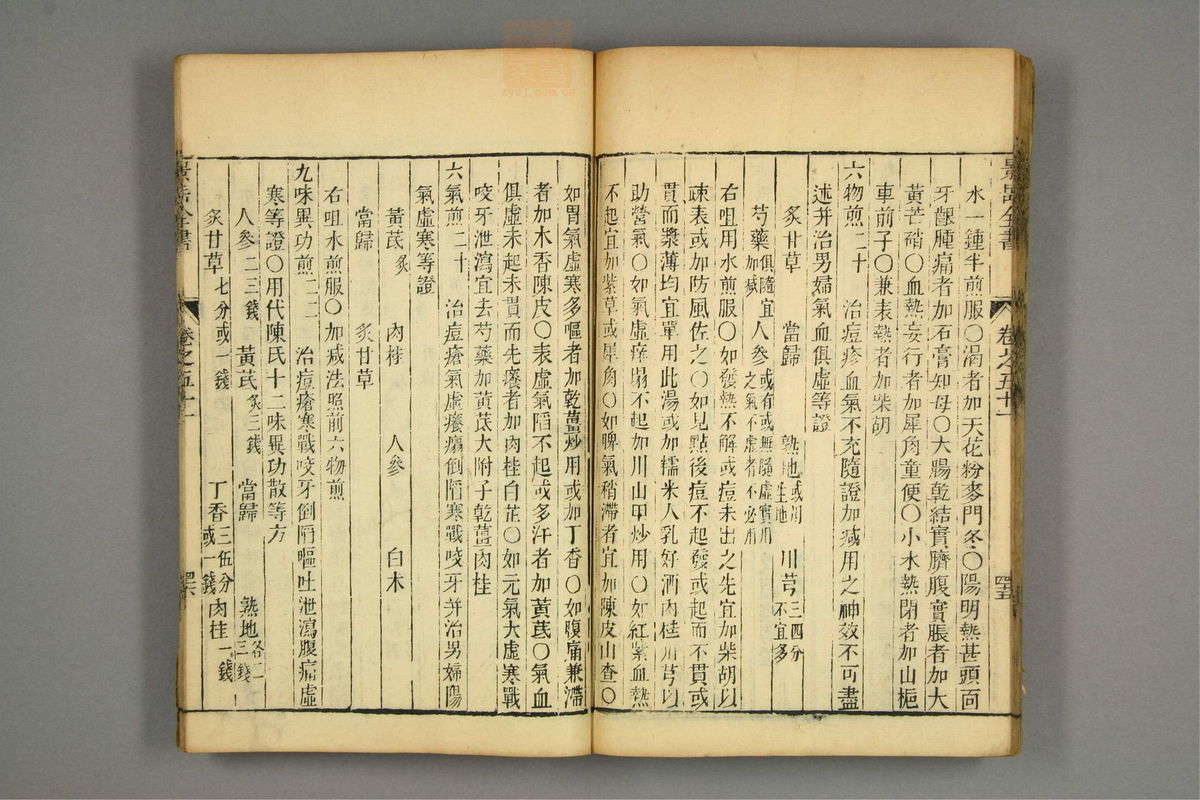 景岳全書 卷之五十一 四十五
水一鍾半煎服〇渴者加天花粉麥門冬〇陽明熱甚頭面
牙齦腫痛者加石膏知母〇大腸乾結實臍腹實脹者加大
黃芒硝〇血熱妄行者加犀角童便〇小水熱閉者加山梔
車前子〇兼表熱者加柴胡
六物煎二十 治痘疹血氣不充隨證加減用之神效不可盡
述并治男婦氣血俱虛等證
炙甘草 當歸 熟地或用生地 川芎三四分不宜多
芍藥俱隨宜加減 人參或有或無隨虛實用之氣不虛者不必用
右咀用水煎服〇如發熱不解或痘未出之先宜加柴胡以
疎表或加防風佐之〇如見點後痘不起發或起而不貫或
貫而漿薄均宜單用此湯或加糯米人乳好酒肉桂川芎以
助營氣〇如氣虛痒塌不起加川山甲炒用〇如紅紫血熱
不起宜加紫草或犀角〇如脾氣稍滯者宜加陳皮山查〇
如胃氣虛寒多嘔者加乾薑炒用或加丁香〇如腹痛兼滯
者加木香陳皮〇表虛氣陷不起或多汗者加黃芪〇氣血
俱虛未起未貫而先癢者加肉桂白芷〇如元氣大虛寒戰
咬牙泄瀉宜去芍藥加黃芪大附子乾薑肉桂
六氣煎二十 治痘瘡氣虛癢癟倒陷寒戰咬牙并治男婦陽
氣虛寒等證
黃芪炙 肉桂 人參 白朮
當歸 炙甘草
右咀水煎服〇加減法照前六物煎
九味異功煎二二 治痘瘡寒戰咬牙倒陷嘔吐泄瀉腹痛虛
寒等證〇用代陳氏十二味異功散等方
人參二三錢 黃芪炙三錢 當歸 熟地各二三錢
炙甘草七分或一錢 丁香三伍分或一錢 肉桂一錢
景岳全書 卷之五十一 四十六